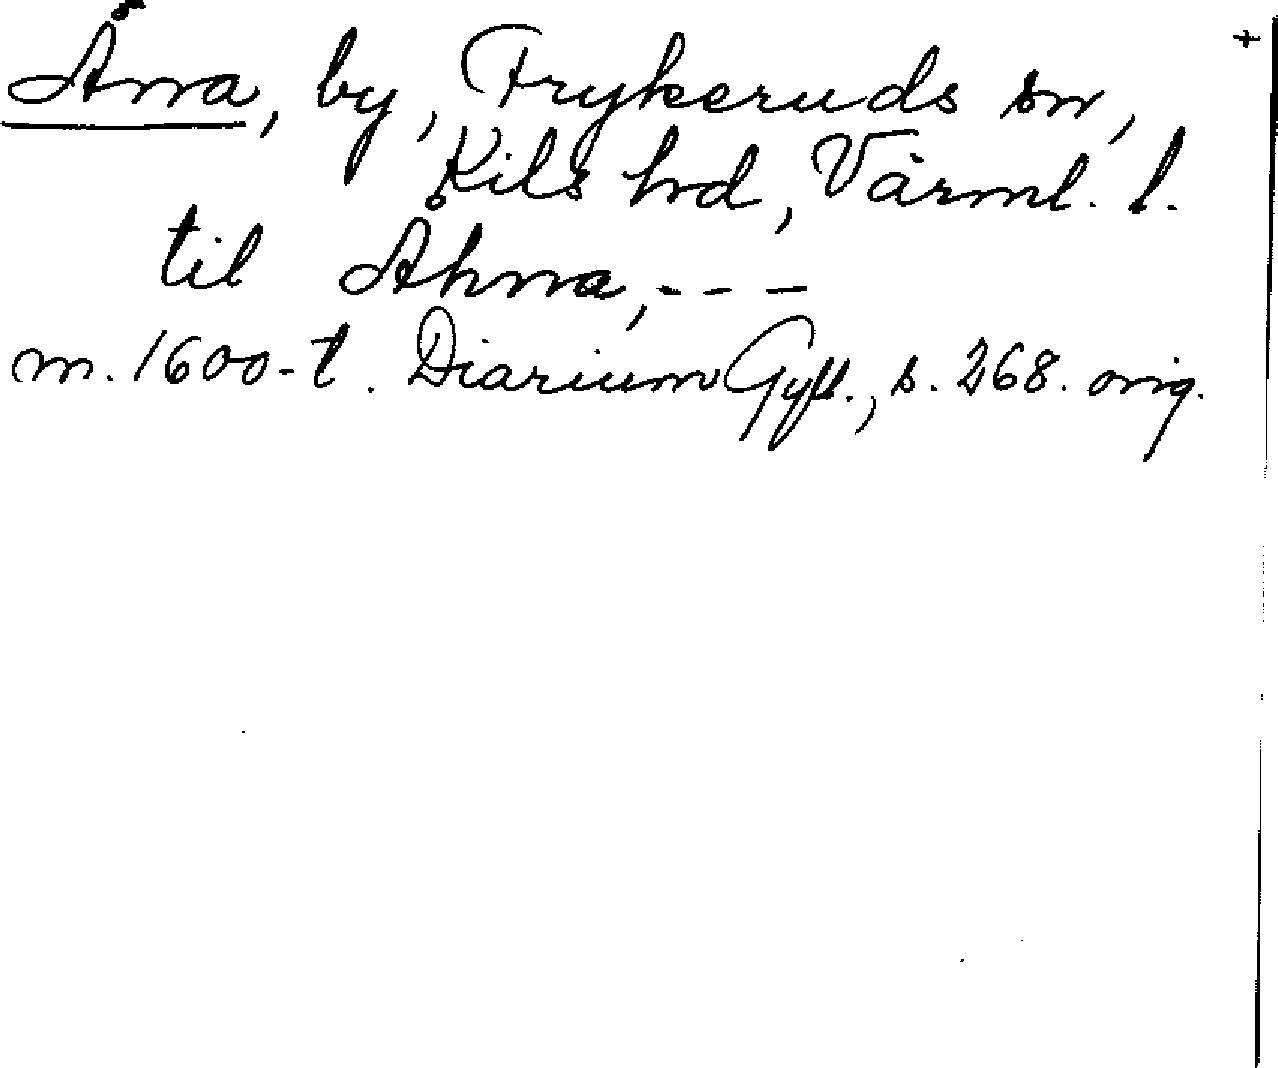 Årra, by, Frykeruds sn, +
Kils hrd, Värml. l.
til Åhrra, - - -
m. 1600-t. Diarium Gyll., s. 268. orig.